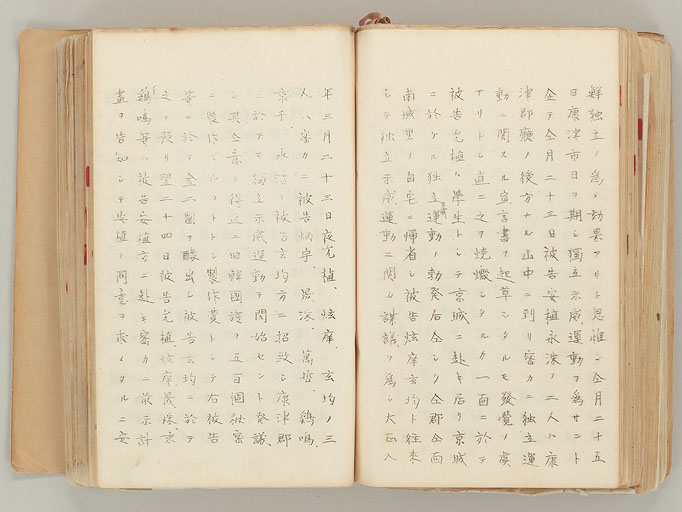 鮮独立ノ為メ効果アリト思惟シ仝月二十五
日康津市日ヲ期シ獨立示威運動ヲ為サント
企テ仝月二十三日被告安植永洙ノ二人ハ康
津郡廳ノ後方ナル山中ニ到リ密カニ独立運
動ニ関スル宣言書ヲ起草シタルモ發覺ノ虞
アリトシ直ニ之ヲ焼燬シタルカ一面ニ於テ
被告允植ハ學生トシテ京城ニ赴キ居リ京城
ニ於ケル独立運動ノ勃発后仝シク仝郡仝面
南城里ノ自宅ニ帰省シ被告炫庠玄均ト往来
シテ独立示威運動ニ関シ謀議ヲ為シ大正八
年三月二十三日夜允植、炫庠、玄均ノ三
人ハ密カニ被告炳宇、晟深、萬哲、鷄鳴、
京千、永洽ヲ被告玄均方ニ招致シ康津郡
ニ於テモ獨立示威運動ヲ開始セント發議
シ其仝意ヲ得直ニ旧韓國旗ヲ五百個秘密
ニ製作スルコトトシ製作費トシテ右被告
等ニ於テ金二圓ヲ醵出シ被告玄均ニ於テ
之ヲ預リ翌二十四日被告允植炫庠晟深京
鷄鳴等ハ被告安植方ニ赴キ密カニ前示計
畫ヲ告知シテ安植ノ同意ヲ求メタルニ安